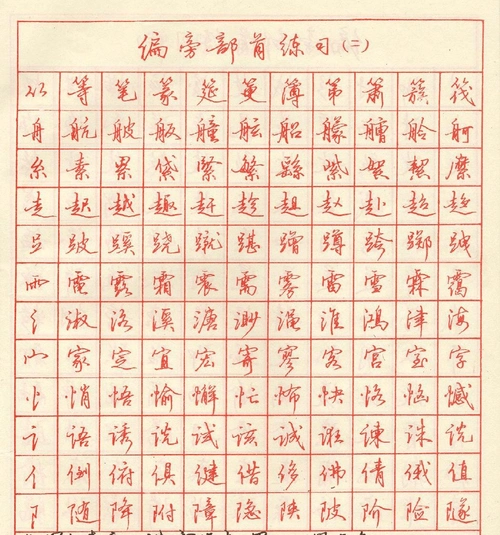 偏旁部首练习(二)
等 笔 篆 筵 簿 第 萧 簇 筏
舟 航 舨 艟 舷 船 艨 艚 舱 舸
糸 素 累 紧 繁 縣 紫 絜 縻
走 起 越 趣 赶 趁 趄 赵 赴 超 趋
跛 蹊 跷 蹴 踺 蹭 蹲 跨 踯
雨 電 露 霜 震 需 雾 雷 雪 霖 霭
氵 淑 洛 溪 溏 渺 渑 淮 鸿 津 海
宀 家 定 宜 宏 寄 寥 客 宫 宝 字
忄 悄 悟 愉 懈 忙 怖 快 恪 恼 憾
讠 语 诱 说 试 该 诚 诳 谏 诛
亻 例 俯 俱 健 借 侈 佛 倩 俄 值
阝 随 降 附 障 隐 陕 陂 阶 险 隧